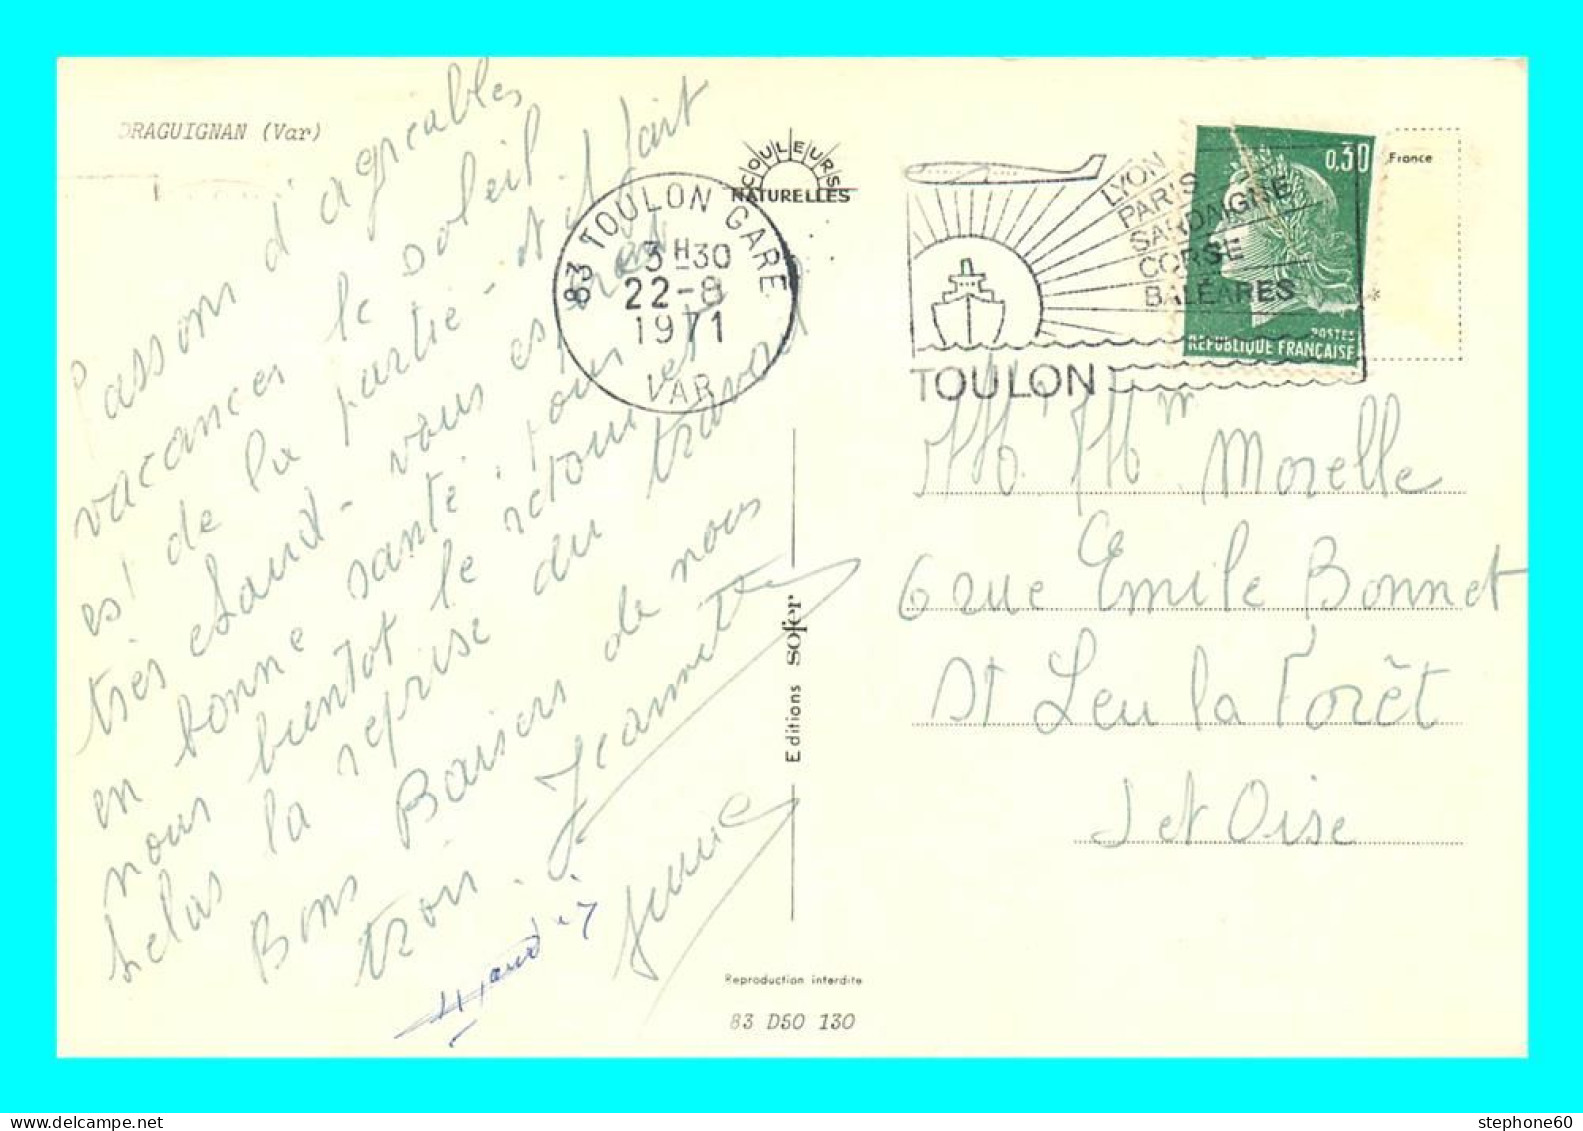 DRAGUIGNAN (Var)
Passons d'agréables
vacances le soleil
est de la partie - et il fait
très chaud - vous es
en bonne santé, pour
nous bientot le retour et
hélas la reprise du travail
Bons Baisers de nous
trois. Jeannette
COULEURS
NATURELLES
83 TOULON GARE
3H30
22-8
1971
VAR
LYON
PARIS
SARDAIGNE
CORSE
BALÉARES
TOULON
0,30
POSTES
REPUBLIQUE FRANÇAISE
France
M. Mm Morelle
6 rue Emile Bonnet
St Leu la Forêt
S et Oise
Editions sofer
Reproduction interdite
83 D50 130
stephone60